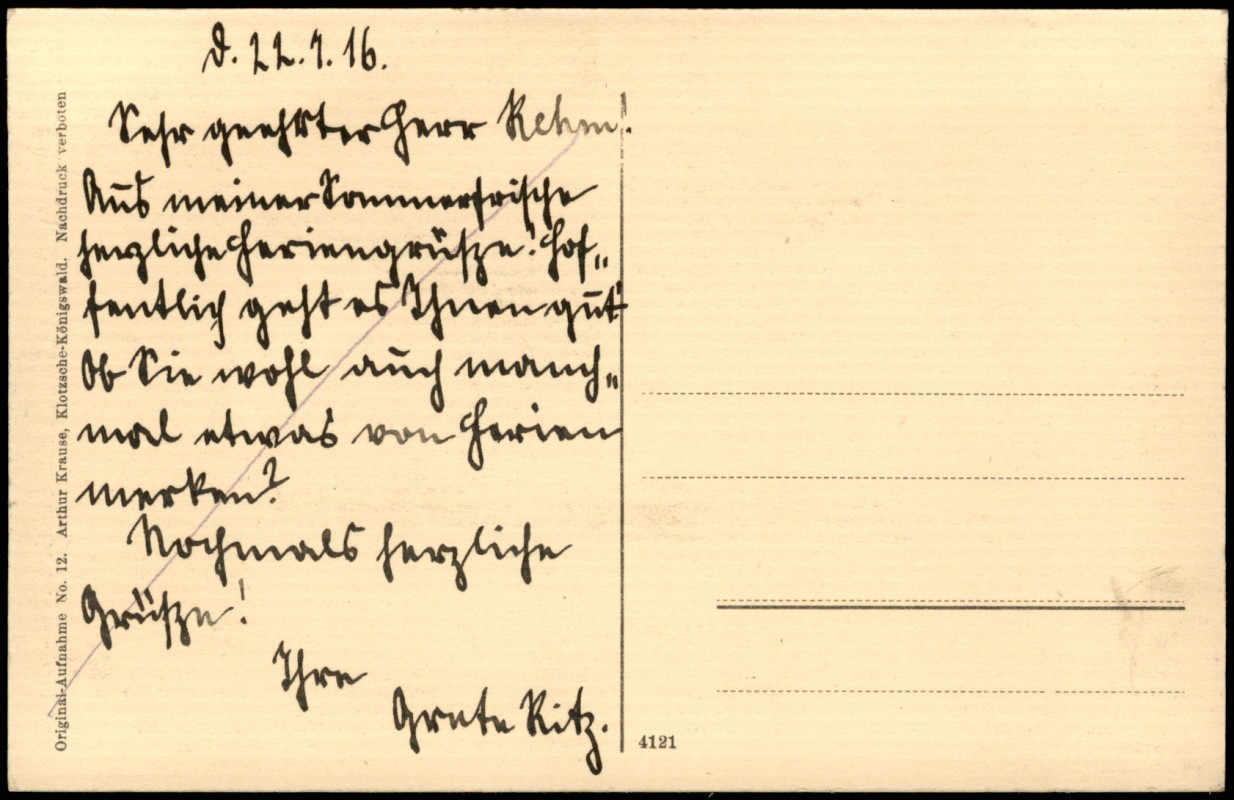 d. 22.7.16.
Sehr geehrter Herr Rehm!
Aus meiner Sommerfrische
herzliche Feriengrüsze! Hof„
fentlich geht es Ihnen gut
Ob Sie wohl auch manch„
mal etwas von Ferien
merken?
Nochmals herzliche
Grüsze!
Ihre
Grete Ritz.
Original-Aufnahme No. 12. Arthur Krause, Klotzsche-Königswald. Nachdruck verboten
4121